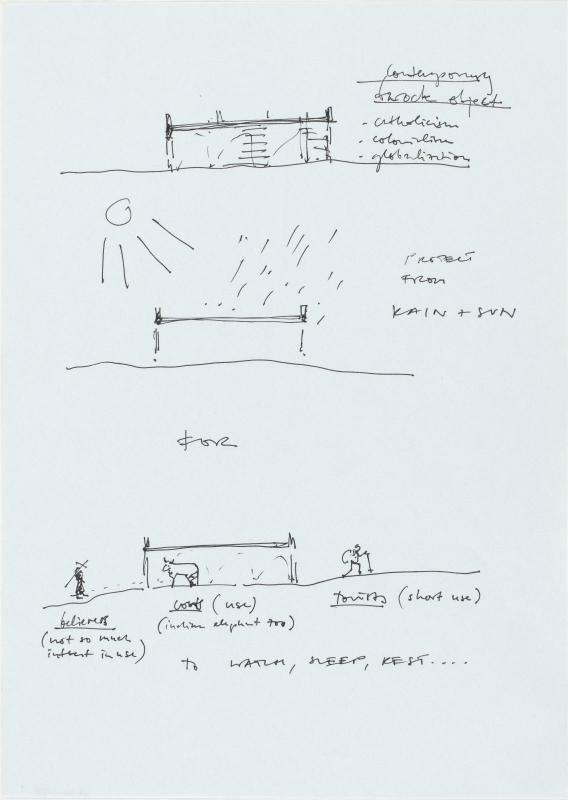 Contemporary
shrock object
- catholicism
- colonialism
- globalization
PROTECT
FROM
RAIN + SUN
FOR
believers
(not so much
interest in use)
cows (use)
(indian elephant too)
tourists (short use)
to WATCH, SLEEP, REST....